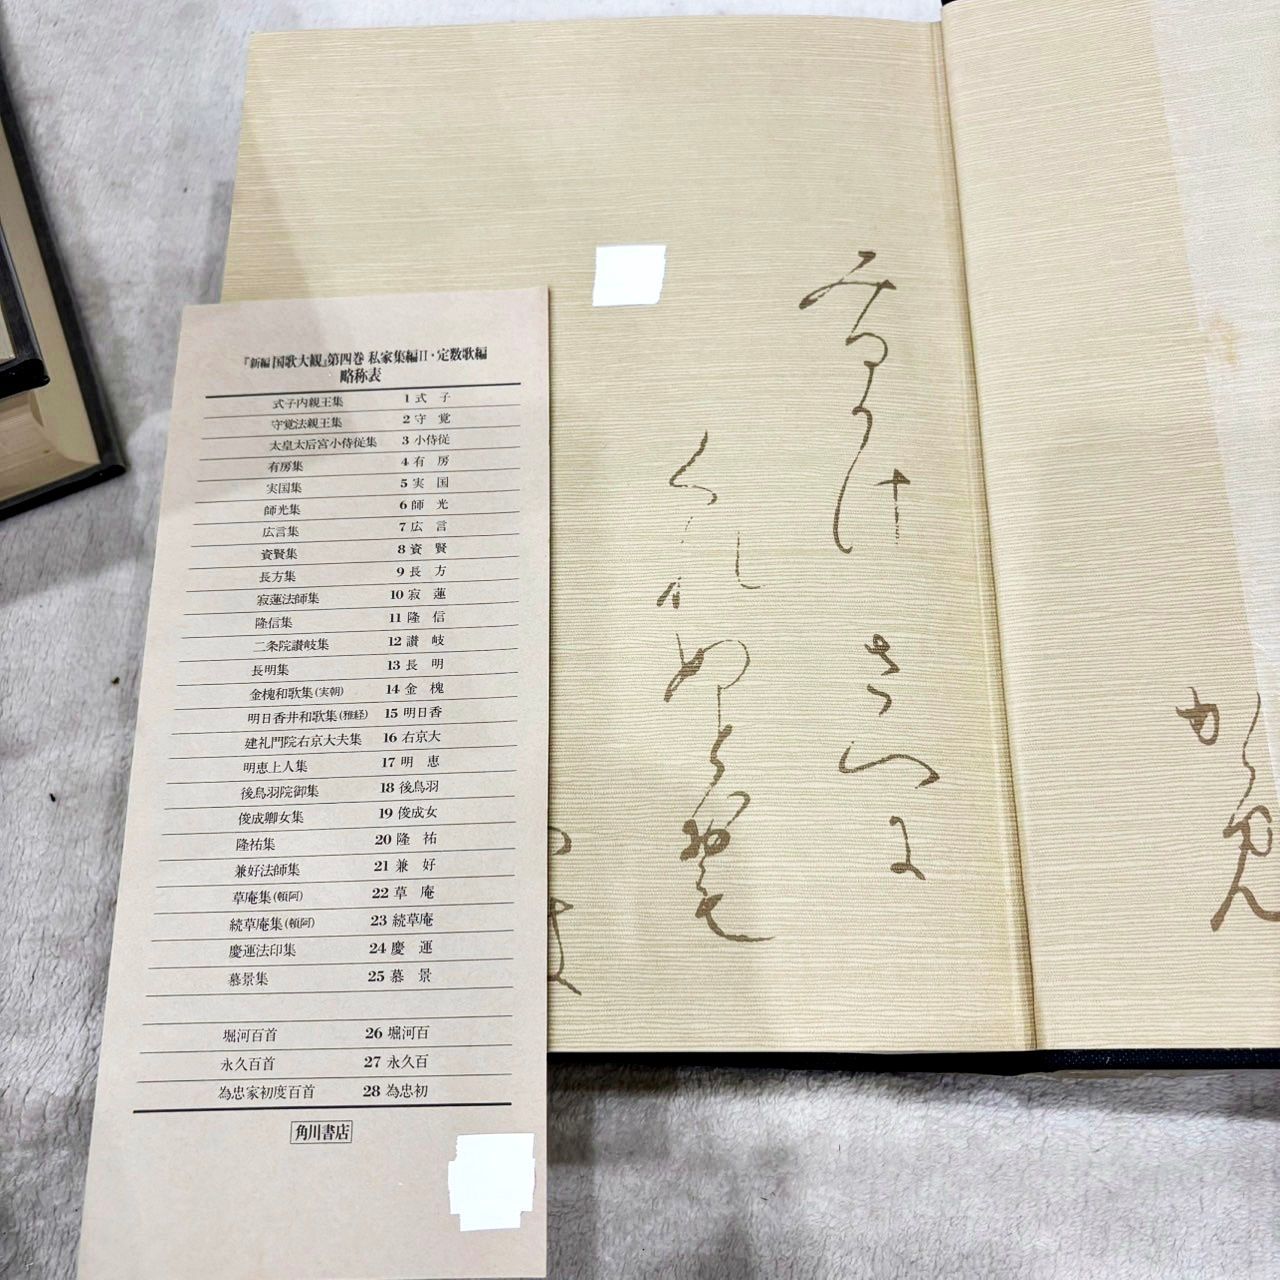 『新編国歌大観』第四巻 私家集編II・定数歌編
略称表
式子内親王集 1 式 子
守覚法親王集 2 守 覚
太皇太后宮小侍従集 3 小侍従
有房集 4 有 房
実国集 5 実 国
師光集 6 師 光
広言集 7 広 言
資賢集 8 資 賢
長方集 9 長 方
寂蓮法師集 10 寂 蓮
隆信集 11 隆 信
二条院讃岐集 12 讃 岐
長明集 13 長 明
金槐和歌集(実朝) 14 金 槐
明日香井和歌集(雅経) 15 明日香
建礼門院右京大夫集 16 右京大
明恵上人集 17 明 恵
後鳥羽院御集 18 後鳥羽
俊成卿女集 19 俊成女
隆祐集 20 隆 祐
兼好法師集 21 兼 好
草庵集(頓阿) 22 草 庵
続草庵集(頓阿) 23 続草庵
慶運法印集 24 慶 運
慕景集 25 慕 景
堀河百首 26 堀河百
永久百首 27 永久百
為忠家初度百首 28 為忠初
角川書店